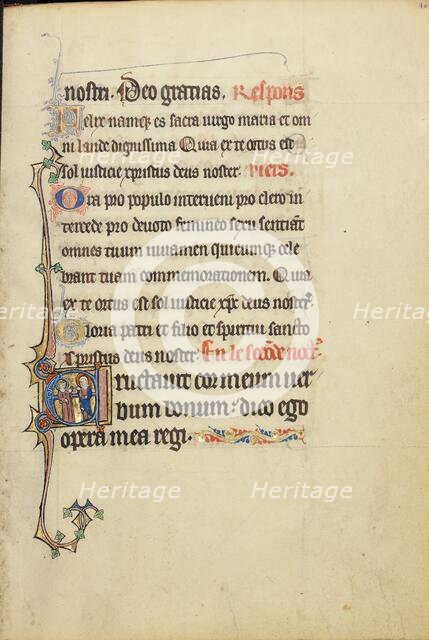 nostri. Deo gratias. Respons
Felix namq; es sacra uirgo maria et om
ni laude dignissima Quia ex te ortus est
sol iusticie xpristus deus noster. Uers.
Ora pro populo interueni pro clero in
tercede pro deuoto femineo sexu sentiant
omnes tuum iuuamen quicumque cele
brant tuam commemorationem. Quia
ex te ortus est sol iusticie xpc deus noster.
Gloria patri et filio et spiritui sancto
xpristus deus noster. En le secōde noct.
Eructauit cor meum uer
bum bonum: dico ego
opera mea regi.
Heritage
Heritage
Heritage
Heritage
Heritage
Heritage
Heritage
Heritage